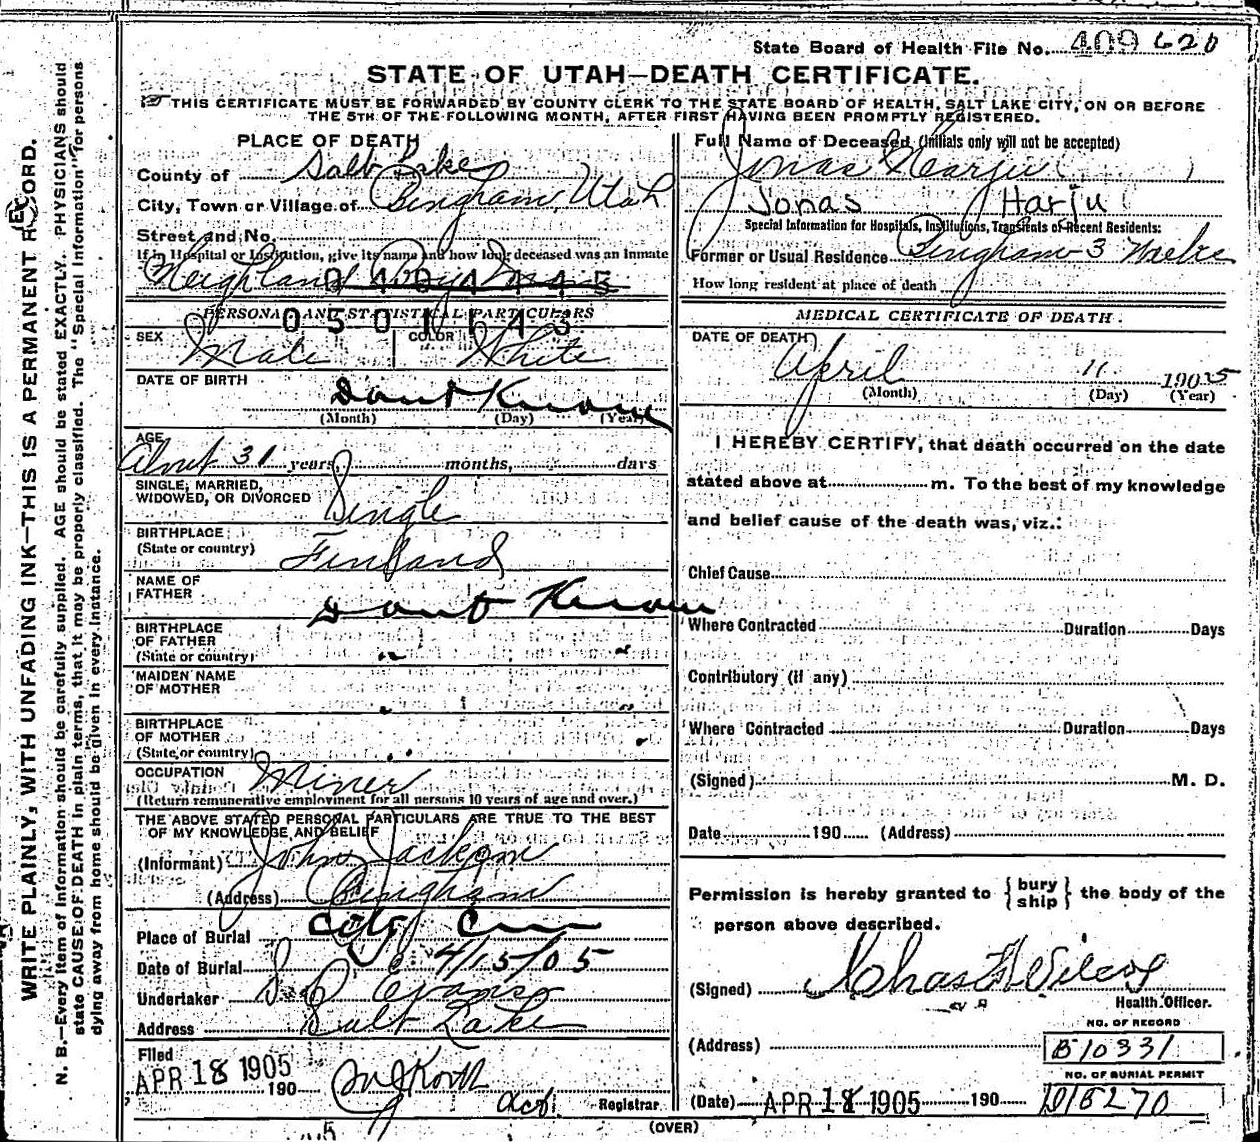 State Board of Health File No. 409 620
STATE OF UTAH—DEATH CERTIFICATE.
THIS CERTIFICATE MUST BE FORWARDED BY COUNTY CLERK TO THE STATE BOARD OF HEALTH, SALT LAKE CITY, ON OR BEFORE
THE 5TH OF THE FOLLOWING MONTH, AFTER FIRST HAVING BEEN PROMPTLY REGISTERED.
WRITE PLAINLY, WITH UNFADING INK—THIS IS A PERMANENT RECORD.
N. B.—Every item of information should be carefully supplied. AGE should be stated EXACTLY. PHYSICIANS should
state CAUSE OF DEATH in plain terms, that it may be properly classified. The "Special Information" for persons
dying away from home should be given in every instance.
PLACE OF DEATH
County of Salt Lake
City, Town or Village of Bingham, Utah
Street and No.
If in Hospital or Institution, give its name and how long deceased was an inmate
0404445
PERSONAL AND STATISTICAL PARTICULARS
0501143
SEX Male COLOR White
DATE OF BIRTH
Dont Know
(Month) (Day) (Year)
AGE
About 31 years, months, days
SINGLE, MARRIED,
WIDOWED, OR DIVORCED Single
BIRTHPLACE
(State or country) Finland
NAME OF
FATHER Dont Know
BIRTHPLACE
OF FATHER
(State or country) " "
MAIDEN NAME
OF MOTHER " "
BIRTHPLACE
OF MOTHER
(State or country) " "
OCCUPATION Miner
(Return remunerative employment for all persons 10 years of age and over.)
THE ABOVE STATED PERSONAL PARTICULARS ARE TRUE TO THE BEST
OF MY KNOWLEDGE AND BELIEF
(Informant) John Jackson
(Address) Bingham
Place of Burial City Cem
Date of Burial 4/15/05
Undertaker S D Evans
Address Salt Lake
Filed
APR 18 1905 190
Act Registrar
Full Name of Deceased (Initials only will not be accepted)
Jonas Harju ( )
Jonas Harju
Special Information for Hospitals, Institutions, Transients of Recent Residents:
Former or Usual Residence Bingham 3 Weeks
How long resident at place of death
MEDICAL CERTIFICATE OF DEATH.
DATE OF DEATH
April 11 1905
(Month) (Day) (Year)
I HEREBY CERTIFY, that death occurred on the date
stated above at m. To the best of my knowledge
and belief cause of the death was, viz.:
Chief Cause
Where Contracted Duration Days
Contributory (if any)
Where Contracted Duration Days
(Signed) M. D.
Date 190 (Address)
Permission is hereby granted to {bury ship} the body of the
person above described.
(Signed) Chas F Wilcox
Health Officer.
NO. OF RECORD
(Address) B10331
NO. OF BURIAL PERMIT
(Date) APR 18 1905 190 D/5270
(OVER)